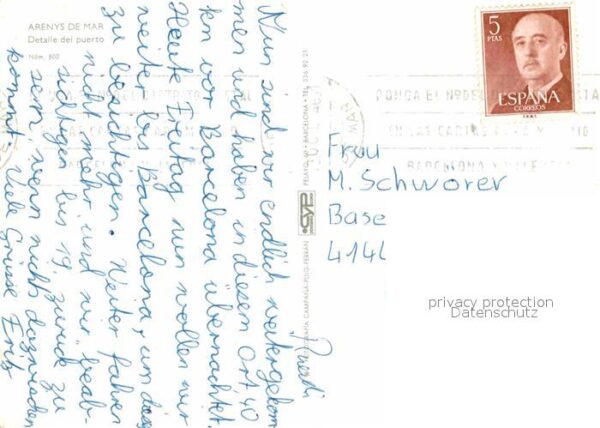 ARENYS DE MAR
Detalle del puerto
Núm. 800
Nun sind wir endlich weitergekom
men und haben in diesem Ort 40
km vor Barcelona übernachtet.
Heute Freitag nun wollen wir
weiter bis Barcelona, um das
zu besichtigen. Weiter fahren
nicht mehr und wir beab-
sichtigen bis 19. zurück zu
sein, wenn nichts dazwischen
kommt. Viele Grüsse Fritz
FOTOGRAFIA CAMPAÑÁ-PUIG-FERRÁN
BARCELONA
5
PTAS
ESPAÑA
CORREOS
PONGA EL Nº DEL
EN LAS CARTAS PARA
BARCELONA Y
Frau
M. Schwörer
Base
414
privacy protection
Datenschutz